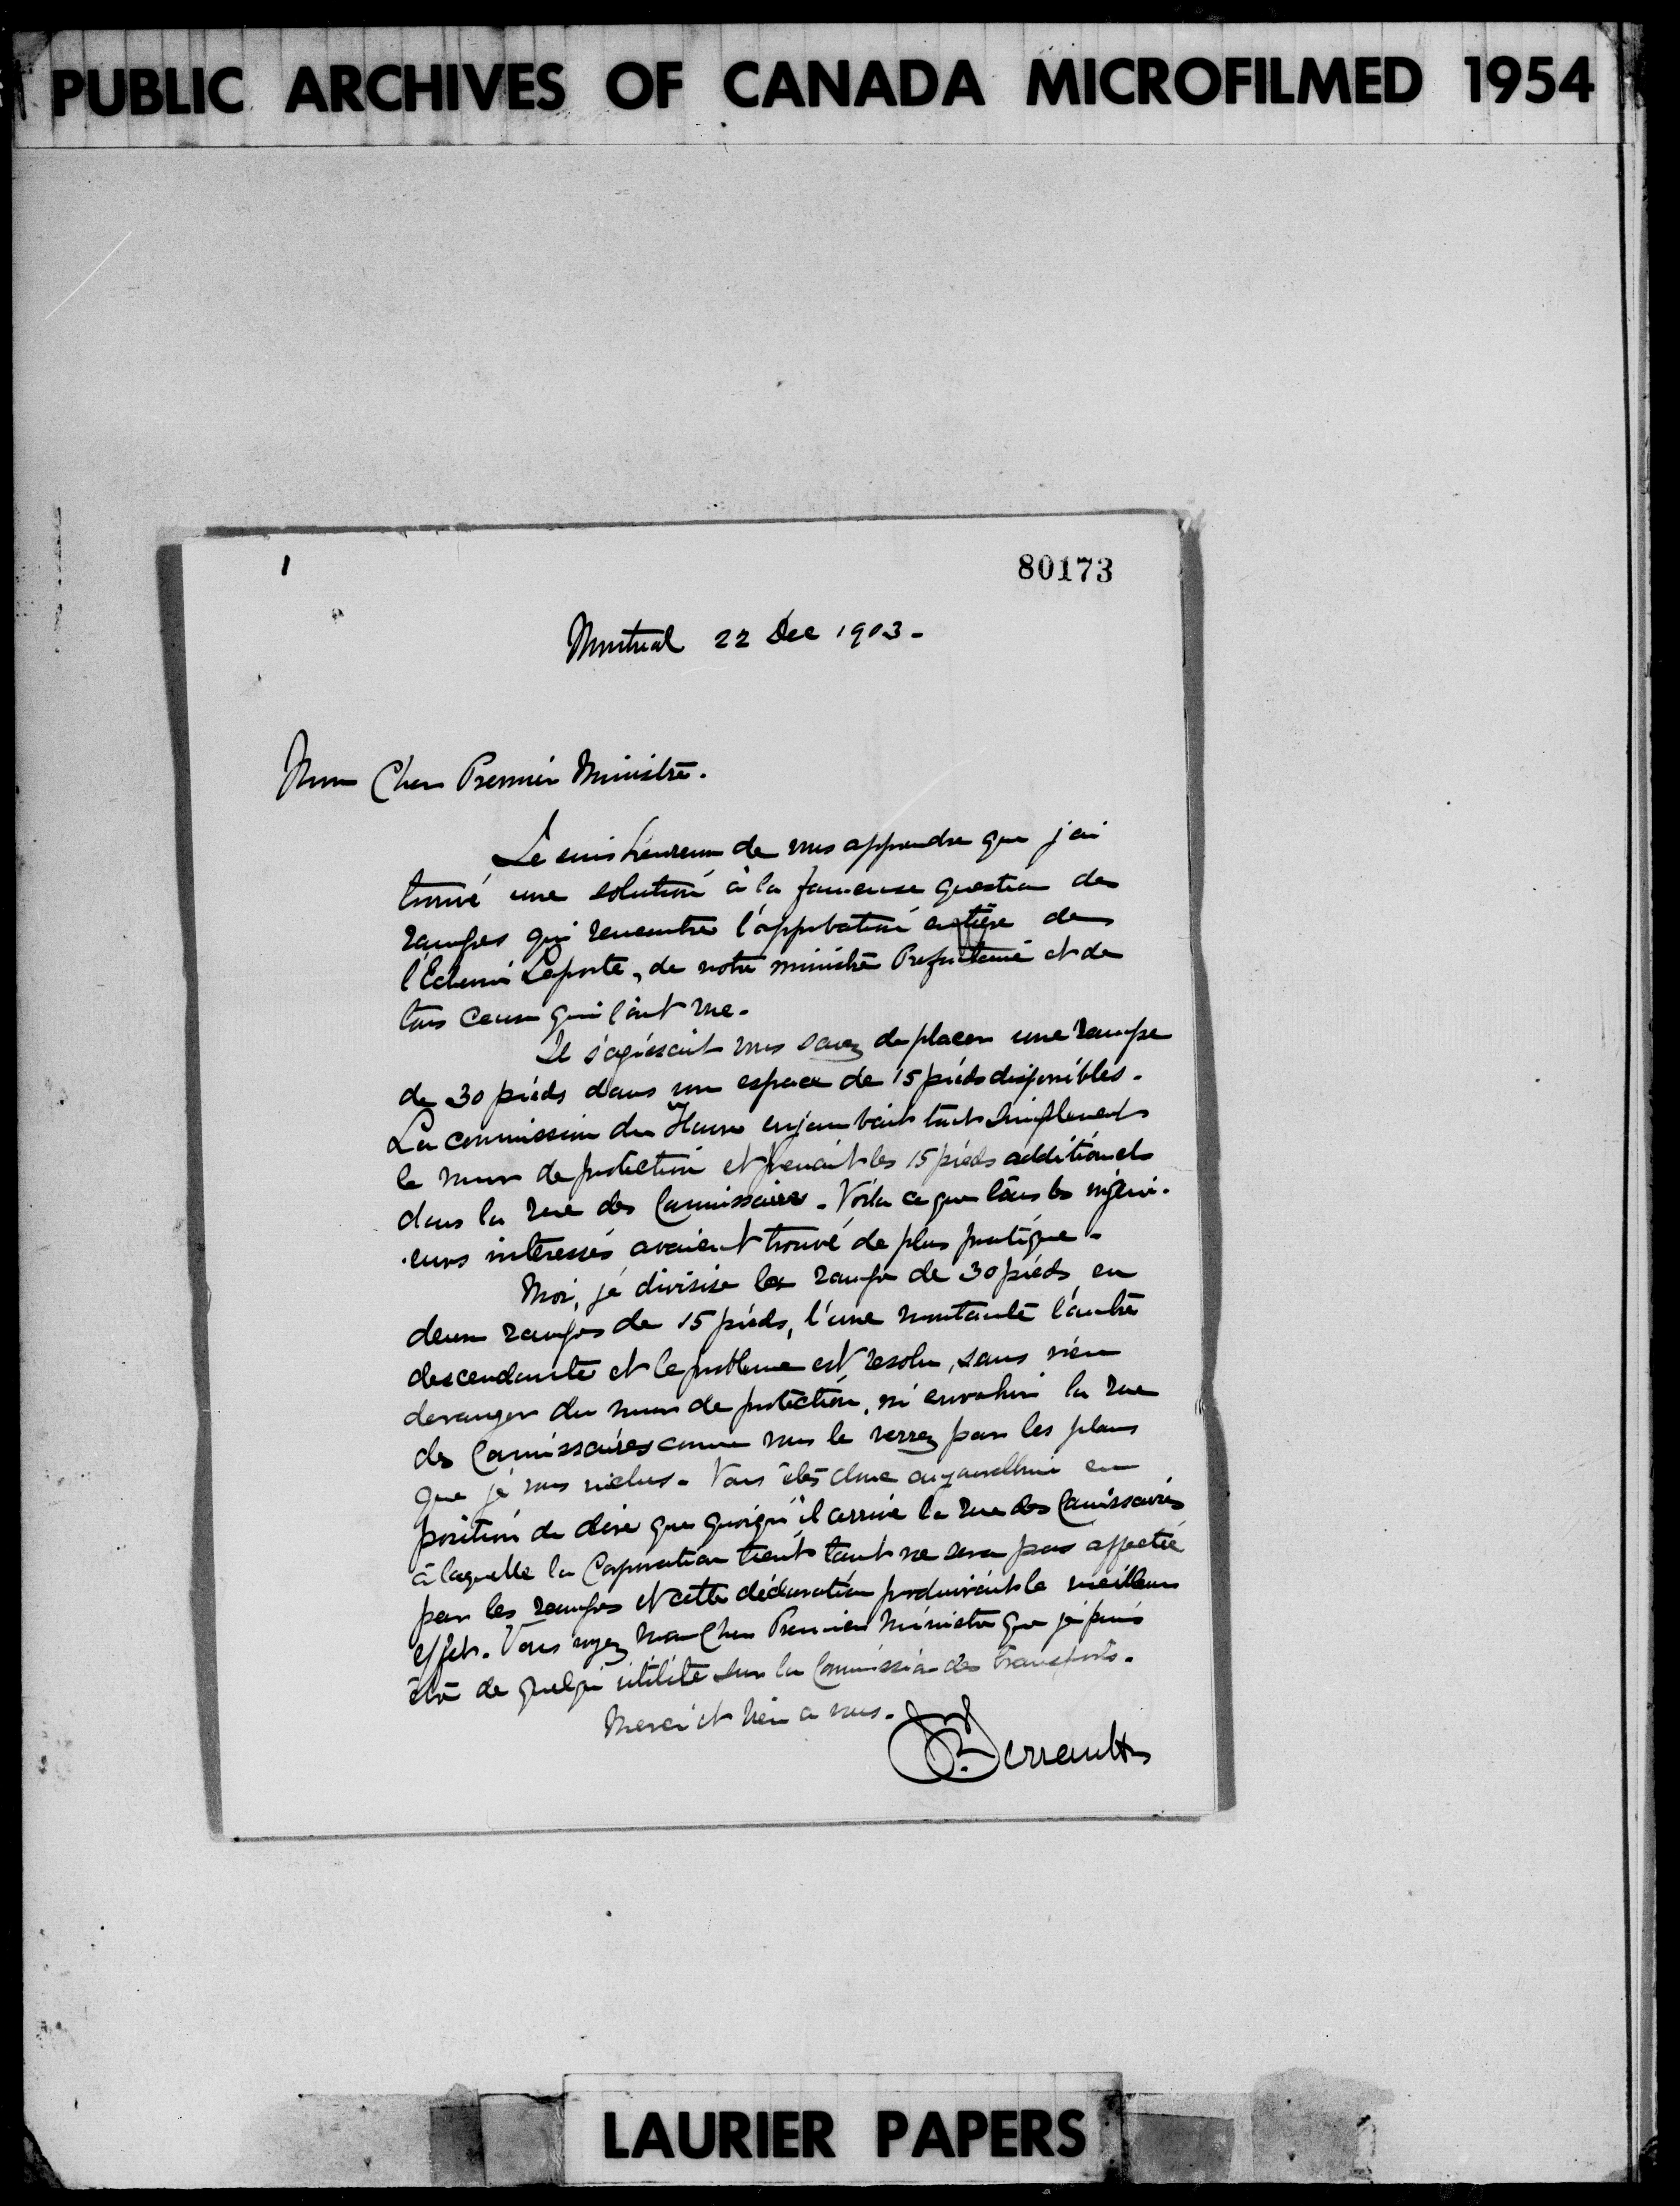 PUBLIC ARCHIVES OF CANADA MICROFILMED 1954
1
80173
Montreal 22 Dec 1903.
Mon Cher Premier Ministre.
Je suis heureux de vous apprendre que j'ai
trouvé une solution à la fameuse question des
rampes qui rencontre l'approbation entière de
l'Echevin Laporte, de notre ministre Prefontaine et de
tous ceux qui l'ont vue.
Il s'agissait vous savez de placer une rampe
de 30 pieds dans un espace de 15 pieds disponibles.
La commission du Havre enjambait tout simplement
le mur de protection et prenait les 15 pieds additionels
dans la rue des Commissaires. Voila ce que tous les ingeni-
eurs intéressés avaient trouvé de plus pratique.
Moi, je divise la rampe de 30 pieds en
deux rampes de 15 pieds, l'une montante l'autre
descendante et le probleme est resolu, sans rien
deranger du mur de protection, ni envahir la rue
des Commissaires comme vous le verrez par les plans
que je vous inclus. Vous êtes donc aujourdhui en
position de dire que quoiqu'il arrive la rue des Commissaires
à laquelle la Corporation tient tant ne sera pas affectée
par les rampes et cette déclaration produirait le meilleur
effet. Vous voyez mon Cher Premier Ministre que je puis
être de quelque utilité sur la Commission des transports.
Merci et bien a vous.
Perrault
LAURIER PAPERS